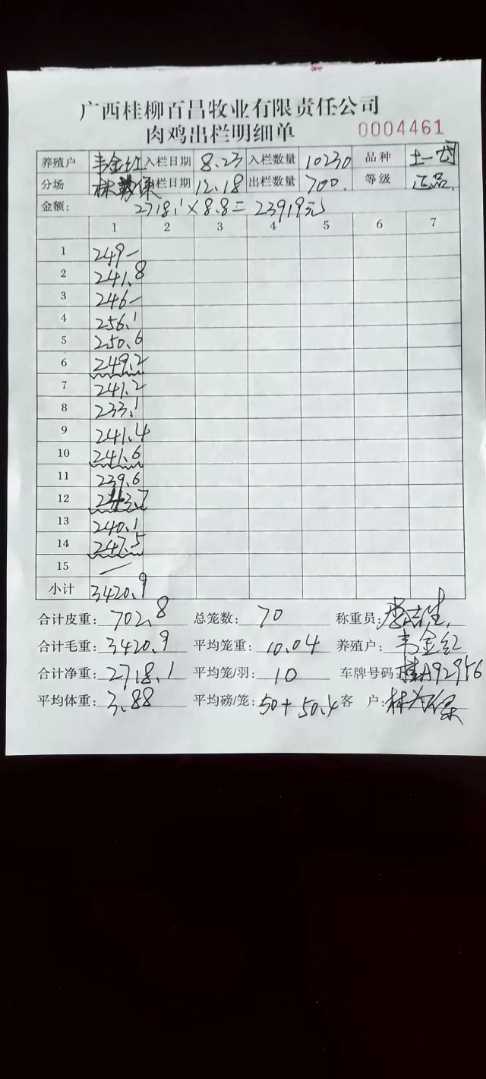 广西桂柳百昌牧业有限责任公司
肉鸡出栏明细单 0004461
养殖户 韦金红 入栏日期 8.23 入栏数量 10230 品种 土一
分场 栏日期 12.18 出栏数量 700. 等级 正品.
金额: 2718.1×8.8=23919元
1 2 3 4 5 6 7
1 249-
2 241.8
3 246-
4 256.1
5 250.6
6 249.2
7 241.2
8 233.1
9 241.4
10 241.6
11 239.6
12 243.7
13 240.1
14 247.5
15 —
小计 3420.9
合计皮重: 702.8 总笼数: 70 称重员:
合计毛重: 3420.9 平均笼重: 10.04 养殖户: 韦金红
合计净重: 2718.1 平均笼/羽: 10 车牌号码: 桂A92956
平均体重: 3.88 平均磅/笼: 50+50.4 客 户: